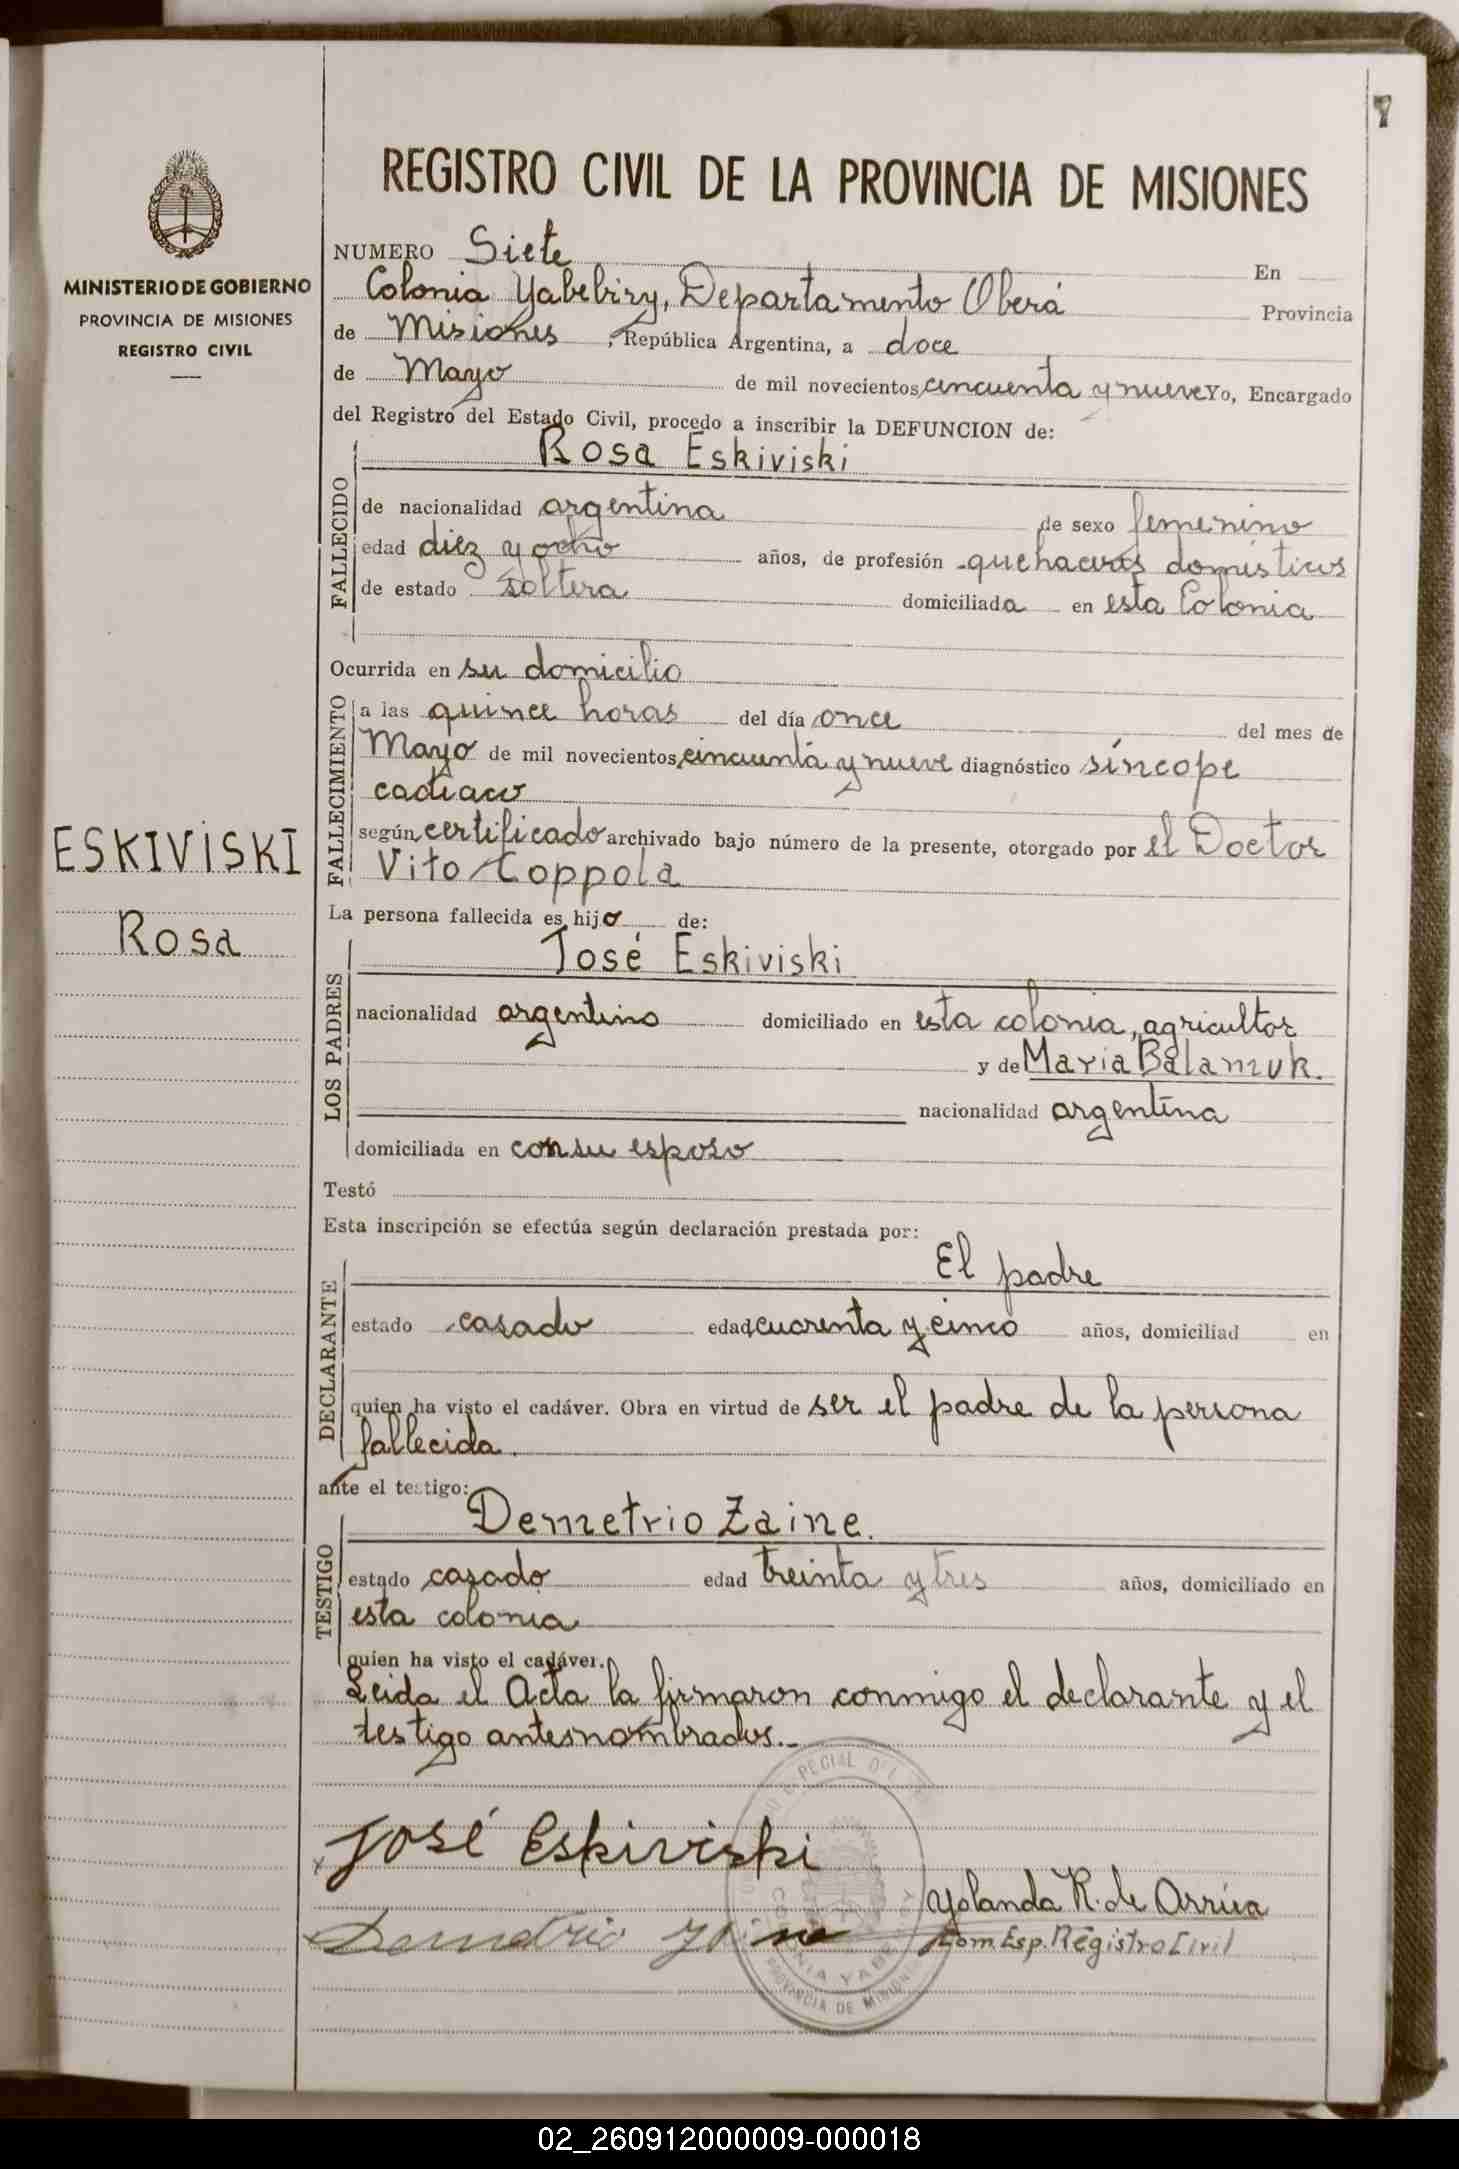 7
REGISTRO CIVIL DE LA PROVINCIA DE MISIONES
MINISTERIO DE GOBIERNO
PROVINCIA DE MISIONES
REGISTRO CIVIL
NUMERO Siete En
Colonia Yabebiry, Departamento Oberá Provincia
de Misiones, República Argentina, a doce
de Mayo de mil novecientos cincuenta y nueve Yo, Encargado
del Registro del Estado Civil, procedo a inscribir la DEFUNCION de:
Rosa Eskiviski
FALLECIDO
de nacionalidad argentina de sexo femenino
edad diez y ocho años, de profesión quehaceres domésticos
de estado soltera domiciliada en esta Colonia
Ocurrida en su domicilio
FALLECIMIENTO
a las quince horas del día once del mes de
Mayo de mil novecientos cincuenta y nueve diagnóstico síncope
cadiaco
según certificado archivado bajo número de la presente, otorgado por el Doctor
Vito Coppola
ESKIVISKI
Rosa
La persona fallecida es hijo de:
José Eskiviski
LOS PADRES
nacionalidad argentino domiciliado en esta colonia, agricultor
y de Maria Balanzuk.
nacionalidad argentina
domiciliada en con su esposo
Testó
Esta inscripción se efectúa según declaración prestada por:
El padre
DECLARANTE
estado casado edad cuarenta y cinco años, domiciliad en
quien ha visto el cadáver. Obra en virtud de ser el padre de la persona
fallecida.
ante el testigo:
Demetrio Zaine.
TESTIGO
estado casado edad treinta y tres años, domiciliado en
esta colonia
quien ha visto el cadáver.
Leida el Acta la firmaron conmigo el declarante y el
testigo antesnombrados.-
José Eskiviski
Yolanda R. de Arrúa
Demetrio
Com. Esp. Registro Civil
COLONIA YABEBIRY
PROVINCIA DE MISIONES
02_260912000009-000018